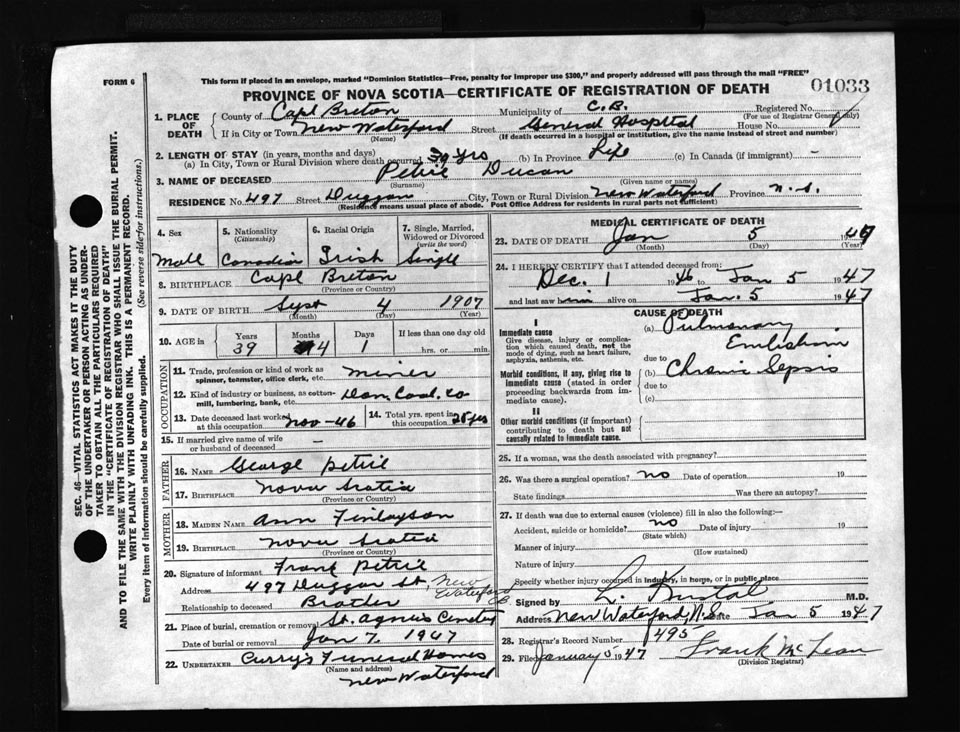 FORM 6
This form if placed in an envelope, marked "Dominion Statistics—Free, penalty for improper use $300," and properly addressed will pass through the mail "FREE"
01033
PROVINCE OF NOVA SCOTIA—CERTIFICATE OF REGISTRATION OF DEATH
1. PLACE OF DEATH
County of Cape Breton Municipality of C.B. Registered No.
(For use of Registrar General only)
If in City or Town New Waterford Street General Hospital House No.
(Name) (If death occurred in a hospital or institution, give the name instead of street and number)
2. LENGTH OF STAY (in years, months and days)
(a) In City, Town or Rural Division where death occurred 39 yrs (b) In Province Life (c) In Canada (if immigrant) –
3. NAME OF DECEASED Petrie Ducan
(Surname) (Given name or names)
RESIDENCE No. 497 Street Duggan City, Town or Rural Division New Waterford Province N.S.
(Residence means usual place of abode. Post Office Address for residents in rural parts not sufficient)
4. Sex
Male
5. Nationality
(Citizenship)
Canadian
6. Racial Origin
Irish
7. Single, Married, Widowed or Divorced
(write the word)
Single
8. BIRTHPLACE Cape Breton
(Province or Country)
9. DATE OF BIRTH Sept 4 1907
(Month) (Day) (Year)
10. AGE in
Years Months Days If less than one day old
39 4 1 hrs. or min.
OCCUPATION
11. Trade, profession or kind of work as spinner, teamster, office clerk, etc. miner
12. Kind of industry or business, as cotton-mill, lumbering, bank, etc. Dom. Coal. Co
13. Date deceased last worked at this occupation Nov-46
14. Total yrs. spent in this occupation 28 yrs
15. If married give name of wife or husband of deceased –
FATHER
16. NAME George Petrie
17. BIRTHPLACE Nova Scotia
(Province or Country)
MOTHER
18. MAIDEN NAME Ann Finlayson
19. BIRTHPLACE Nova Scotia
(Province or Country)
20. Signature of informant Frank Petrie
Address 497 Duggan St, New Waterford CB
Relationship to deceased Brother
21. Place of burial, cremation or removal St. Agnes Cemetery
Date of burial or removal Jan 7 1947
22. UNDERTAKER Curry's Funeral Homes
(Name and address)
New Waterford
MEDICAL CERTIFICATE OF DEATH
23. DATE OF DEATH Jan 5 1947
(Month) (Day) (Year)
24. I HEREBY CERTIFY that I attended deceased from:
Dec. 1 1946 to Jan 5 1947
and last saw him alive on Jan. 5 1947
CAUSE OF DEATH
I
Immediate cause
Give disease, injury or complication which caused death, not the mode of dying, such as heart failure, asphyxia, asthenia, etc.
(a) Pulmonary Embolism
due to
Morbid conditions, if any, giving rise to immediate cause (stated in order proceeding backwards from immediate cause).
(b) Chronic Sepsis
due to
(c)
II
Other morbid conditions (if important) contributing to death but not causally related to immediate cause.
25. If a woman, was the death associated with pregnancy?
26. Was there a surgical operation? no Date of operation 19
State findings Was there an autopsy?
27. If death was due to external causes (violence) fill in also the following:—
Accident, suicide or homicide? no Date of injury 19
(State which)
Manner of injury
(How sustained)
Nature of injury
Specify whether injury occurred in industry, in home, or in public place
Signed by M.D.
Address New Waterford, N.S. Date Jan 5 1947
28. Registrar's Record Number 1495
29. Filed January 5 1947 Frank McLean
(Division Registrar)
SEC. 46—VITAL STATISTICS ACT MAKES IT THE DUTY
OF THE UNDERTAKER OR PERSON ACTING AS UNDERTAKER TO OBTAIN ALL THE PARTICULARS REQUIRED
IN THE "CERTIFICATE OF REGISTRATION OF DEATH"
AND TO FILE THE SAME WITH THE DIVISION REGISTRAR WHO SHALL ISSUE THE BURIAL PERMIT.
WRITE PLAINLY WITH UNFADING INK. THIS IS A PERMANENT RECORD.
Every item of information should be carefully supplied. (See reverse side for instructions.)